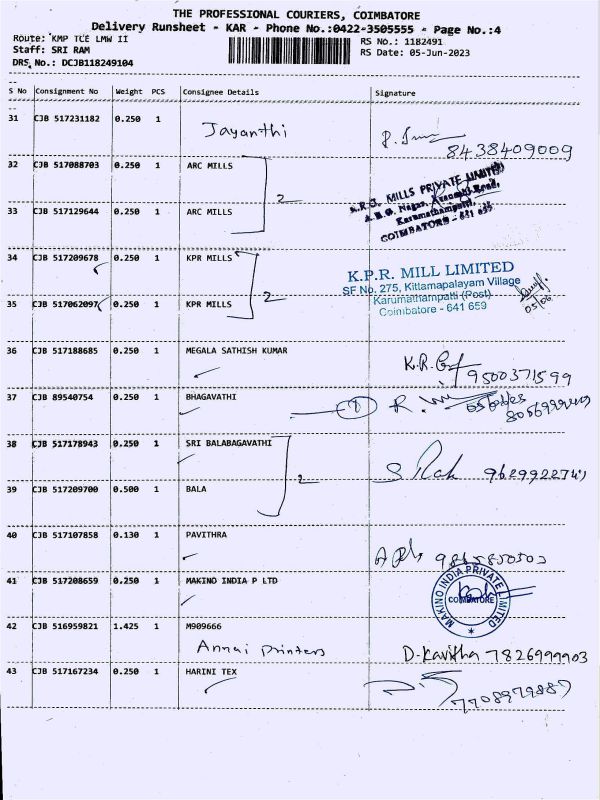 THE PROFESSIONAL COURIERS, COIMBATORE
Delivery Runsheet - KAR - Phone No.:0422-3505555 - Page No.:4
Route: KMP TCE LMW II RS No.: 1182491
Staff: SRI RAM RS Date: 05-Jun-2023
DRS No.: DCJB118249104
S No Consignment No Weight PCS Consignee Details Signature
31 CJB 517231182 0.250 1 Jayanthi
8438409009
32 CJB 517088703 0.250 1 ARC MILLS
2
MILLS PRIVATE LIMITED
33 CJB 517129644 0.250 1 ARC MILLS
Karumathampatti,
COIMBATORE - 641 659
34 CJB 517209678 0.250 1 KPR MILLS
K.P.R. MILL LIMITED
SF No. 275, Kittamapalayam Village
2
Karumathampatti (Post)
05/06
35 CJB 517062097 0.250 1 KPR MILLS
Coimbatore - 641 659
36 CJB 517188685 0.250 1 MEGALA SATHISH KUMAR
9500371599
37 CJB 89540754 0.250 1 BHAGAVATHI
38 CJB 517178943 0.250 1 SRI BALABAGAVATHI
2
39 CJB 517209700 0.500 1 BALA
40 CJB 517107858 0.130 1 PAVITHRA
41 CJB 517208659 0.250 1 MAKINO INDIA P LTD
MAKINO INDIA PRIVATE LIMITED
COIMBATORE
42 CJB 516959821 1.425 1 M909666
Annai Printers D. Kavitha 7826999903
43 CJB 517167234 0.250 1 HARINI TEX
7708979887